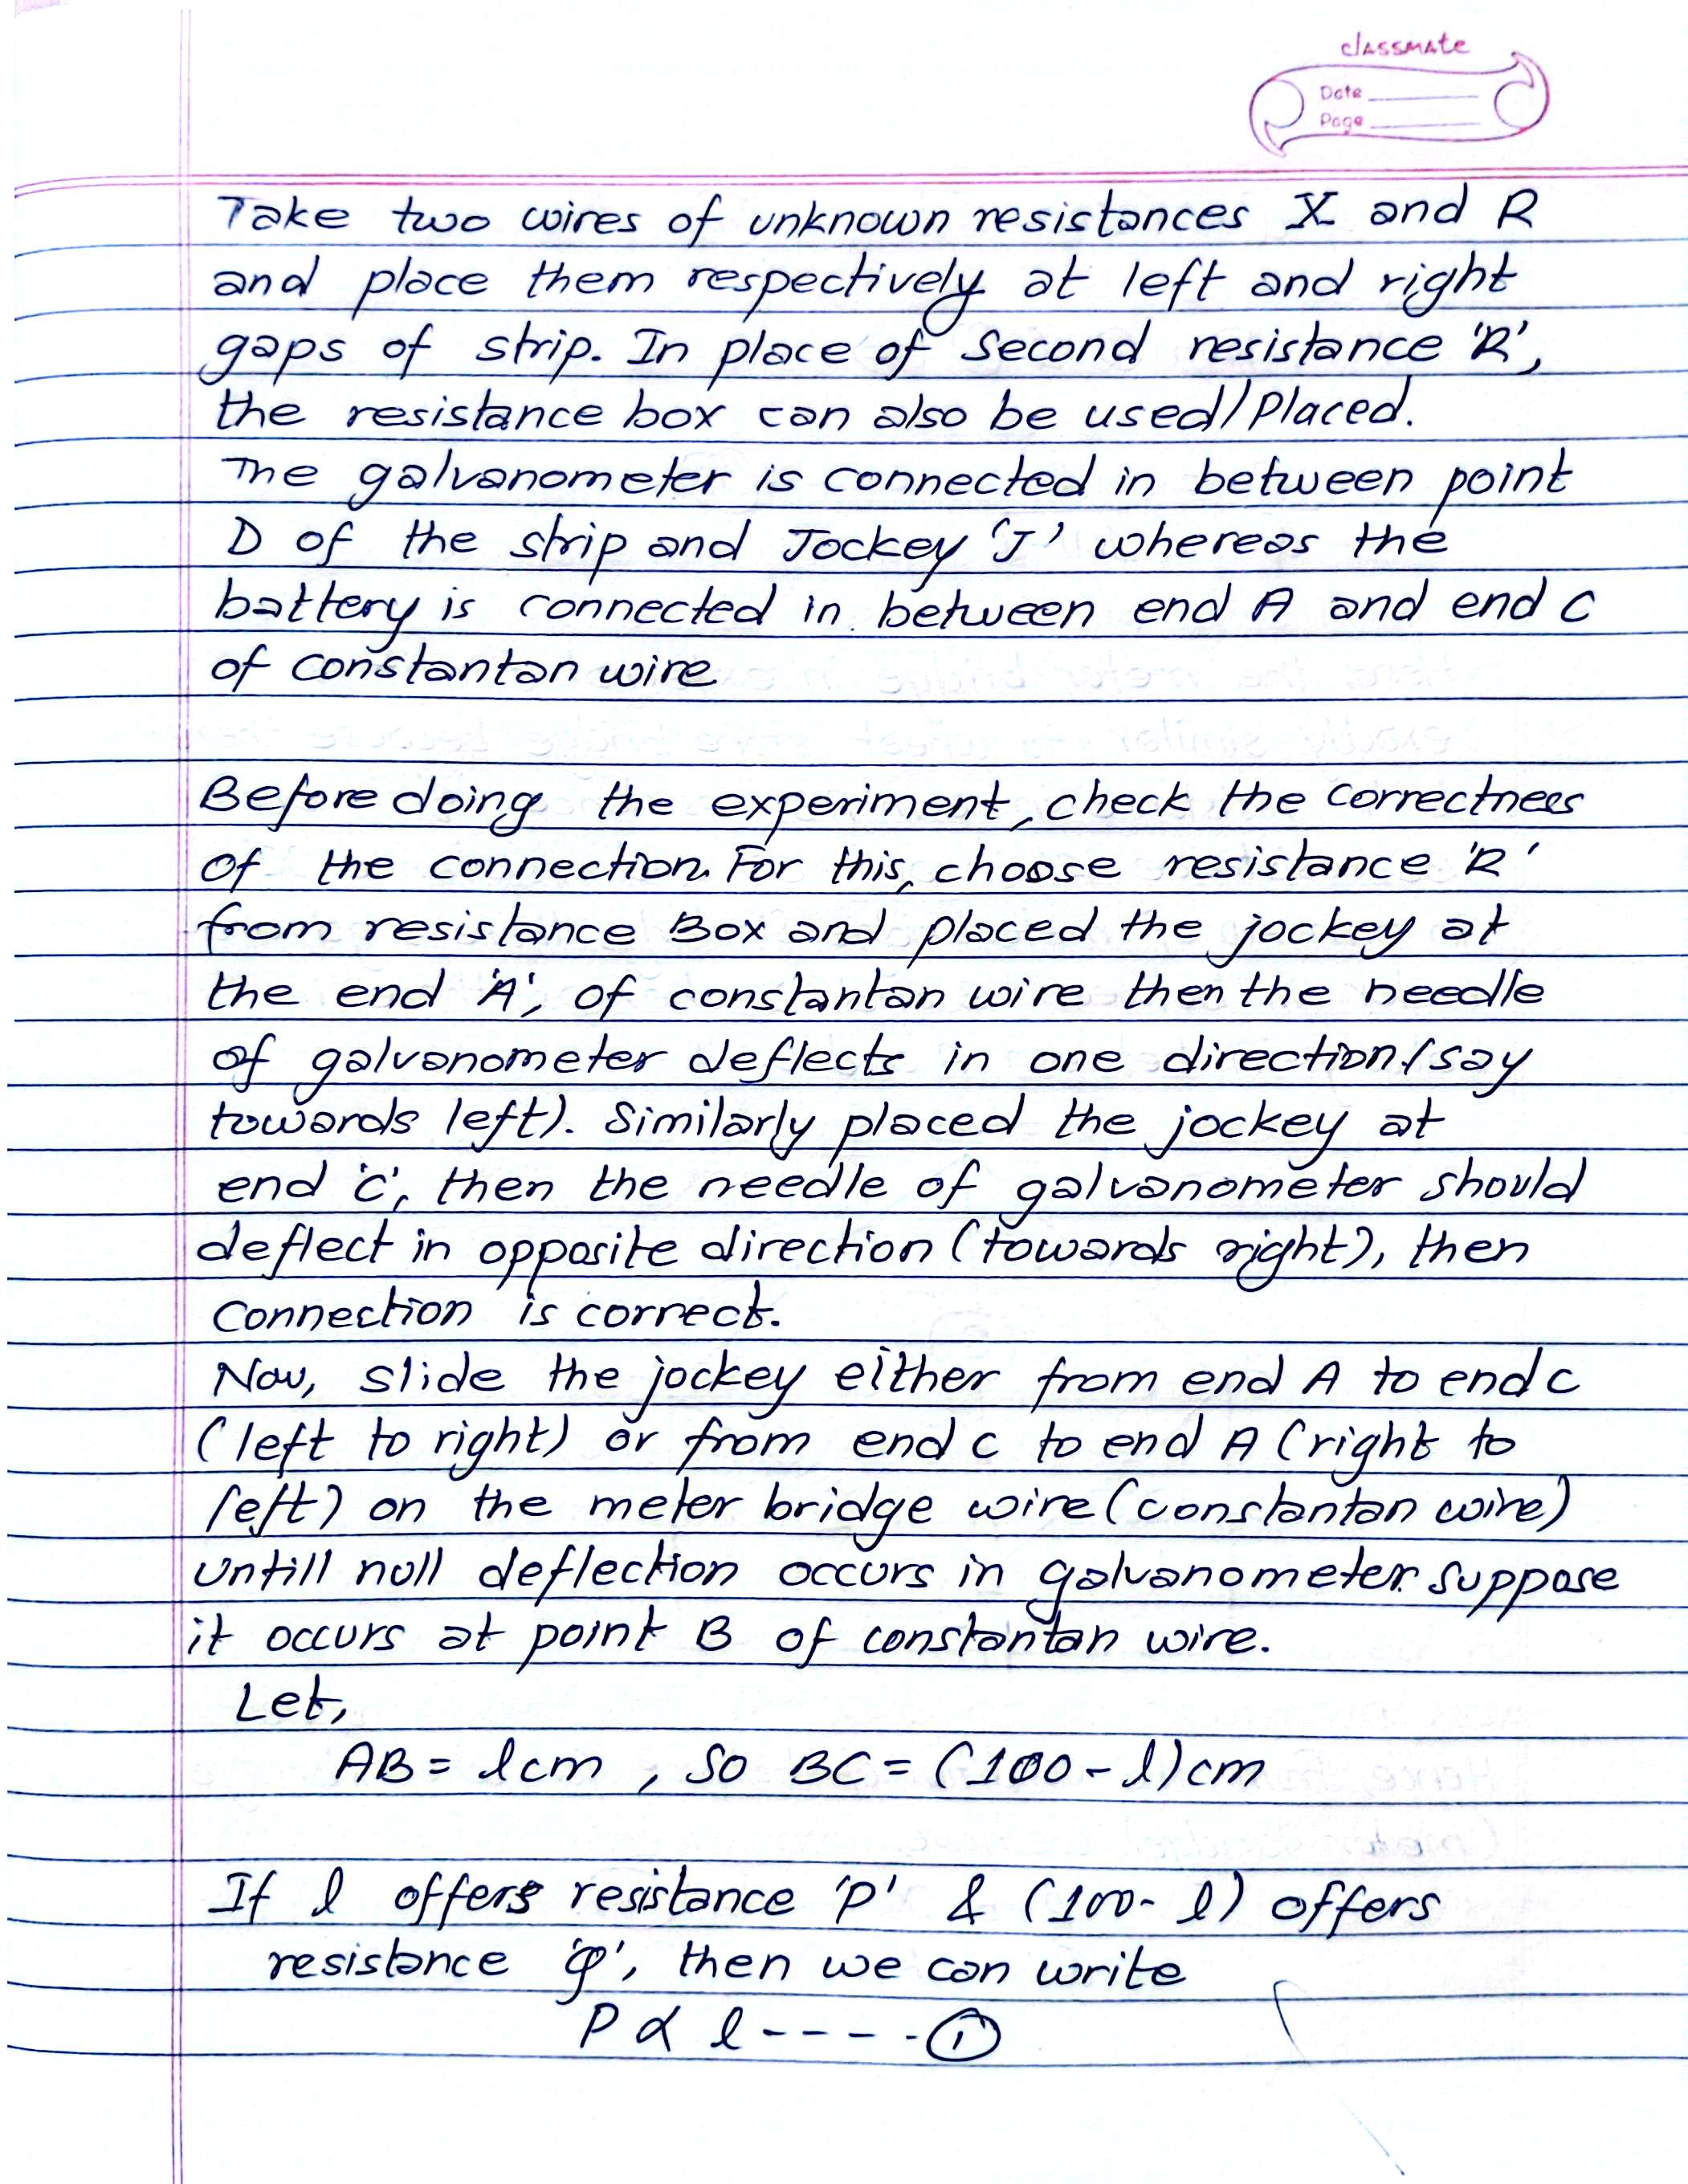 classmate
Date
Page
Take two wires of unknown resistances X and R
and place them respectively at left and right
gaps of strip. In place of Second resistance 'R',
the resistance box can also be used/Placed.
The galvanometer is connected in between point
D of the strip and Jockey 'J' whereas the
battery is connected in between end A and end C
of constantan wire
Before doing the experiment, check the correctness
of the connection. For this, choose resistance 'R'
from resistance Box and placed the jockey at
the end 'A', of constantan wire then the needle
of galvanometer deflects in one direction (say
towards left). Similarly placed the jockey at
end 'C', then the needle of galvanometer should
deflect in opposite direction (towards right), then
Connection is correct.
Now, slide the jockey either from end A to end C
(left to right) or from end C to end A (right to
left) on the meter bridge wire (constantan wire)
untill null deflection occurs in galvanometer. suppose
it occurs at point B of constantan wire.
Let,
AB = l cm , So BC = (100 - l) cm
If l offers resistance 'P' & (100 - l) offers
resistance 'Q', then we can write
P ∝ l ---- - ①